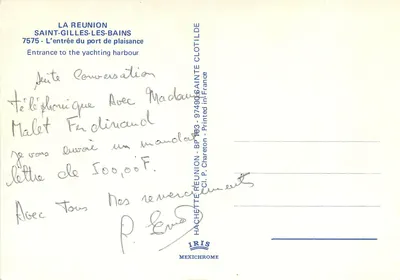 LA REUNION
SAINT-GILLES-LES-BAINS
7575 - L'entrée du port de plaisance
Entrance to the yachting harbour
suite Conversation
téléphonique Avec Madame
Malet Ferdinand
je vous envoie un mandat
lettre de 500,00F.
Avec Tous mes remerciements
P.
HACHETTE REUNION - BP 183 - 97490 SAINTE CLOTILDE
Cl. P. Chareton - Printed in France
IRIS
MEXICHROME